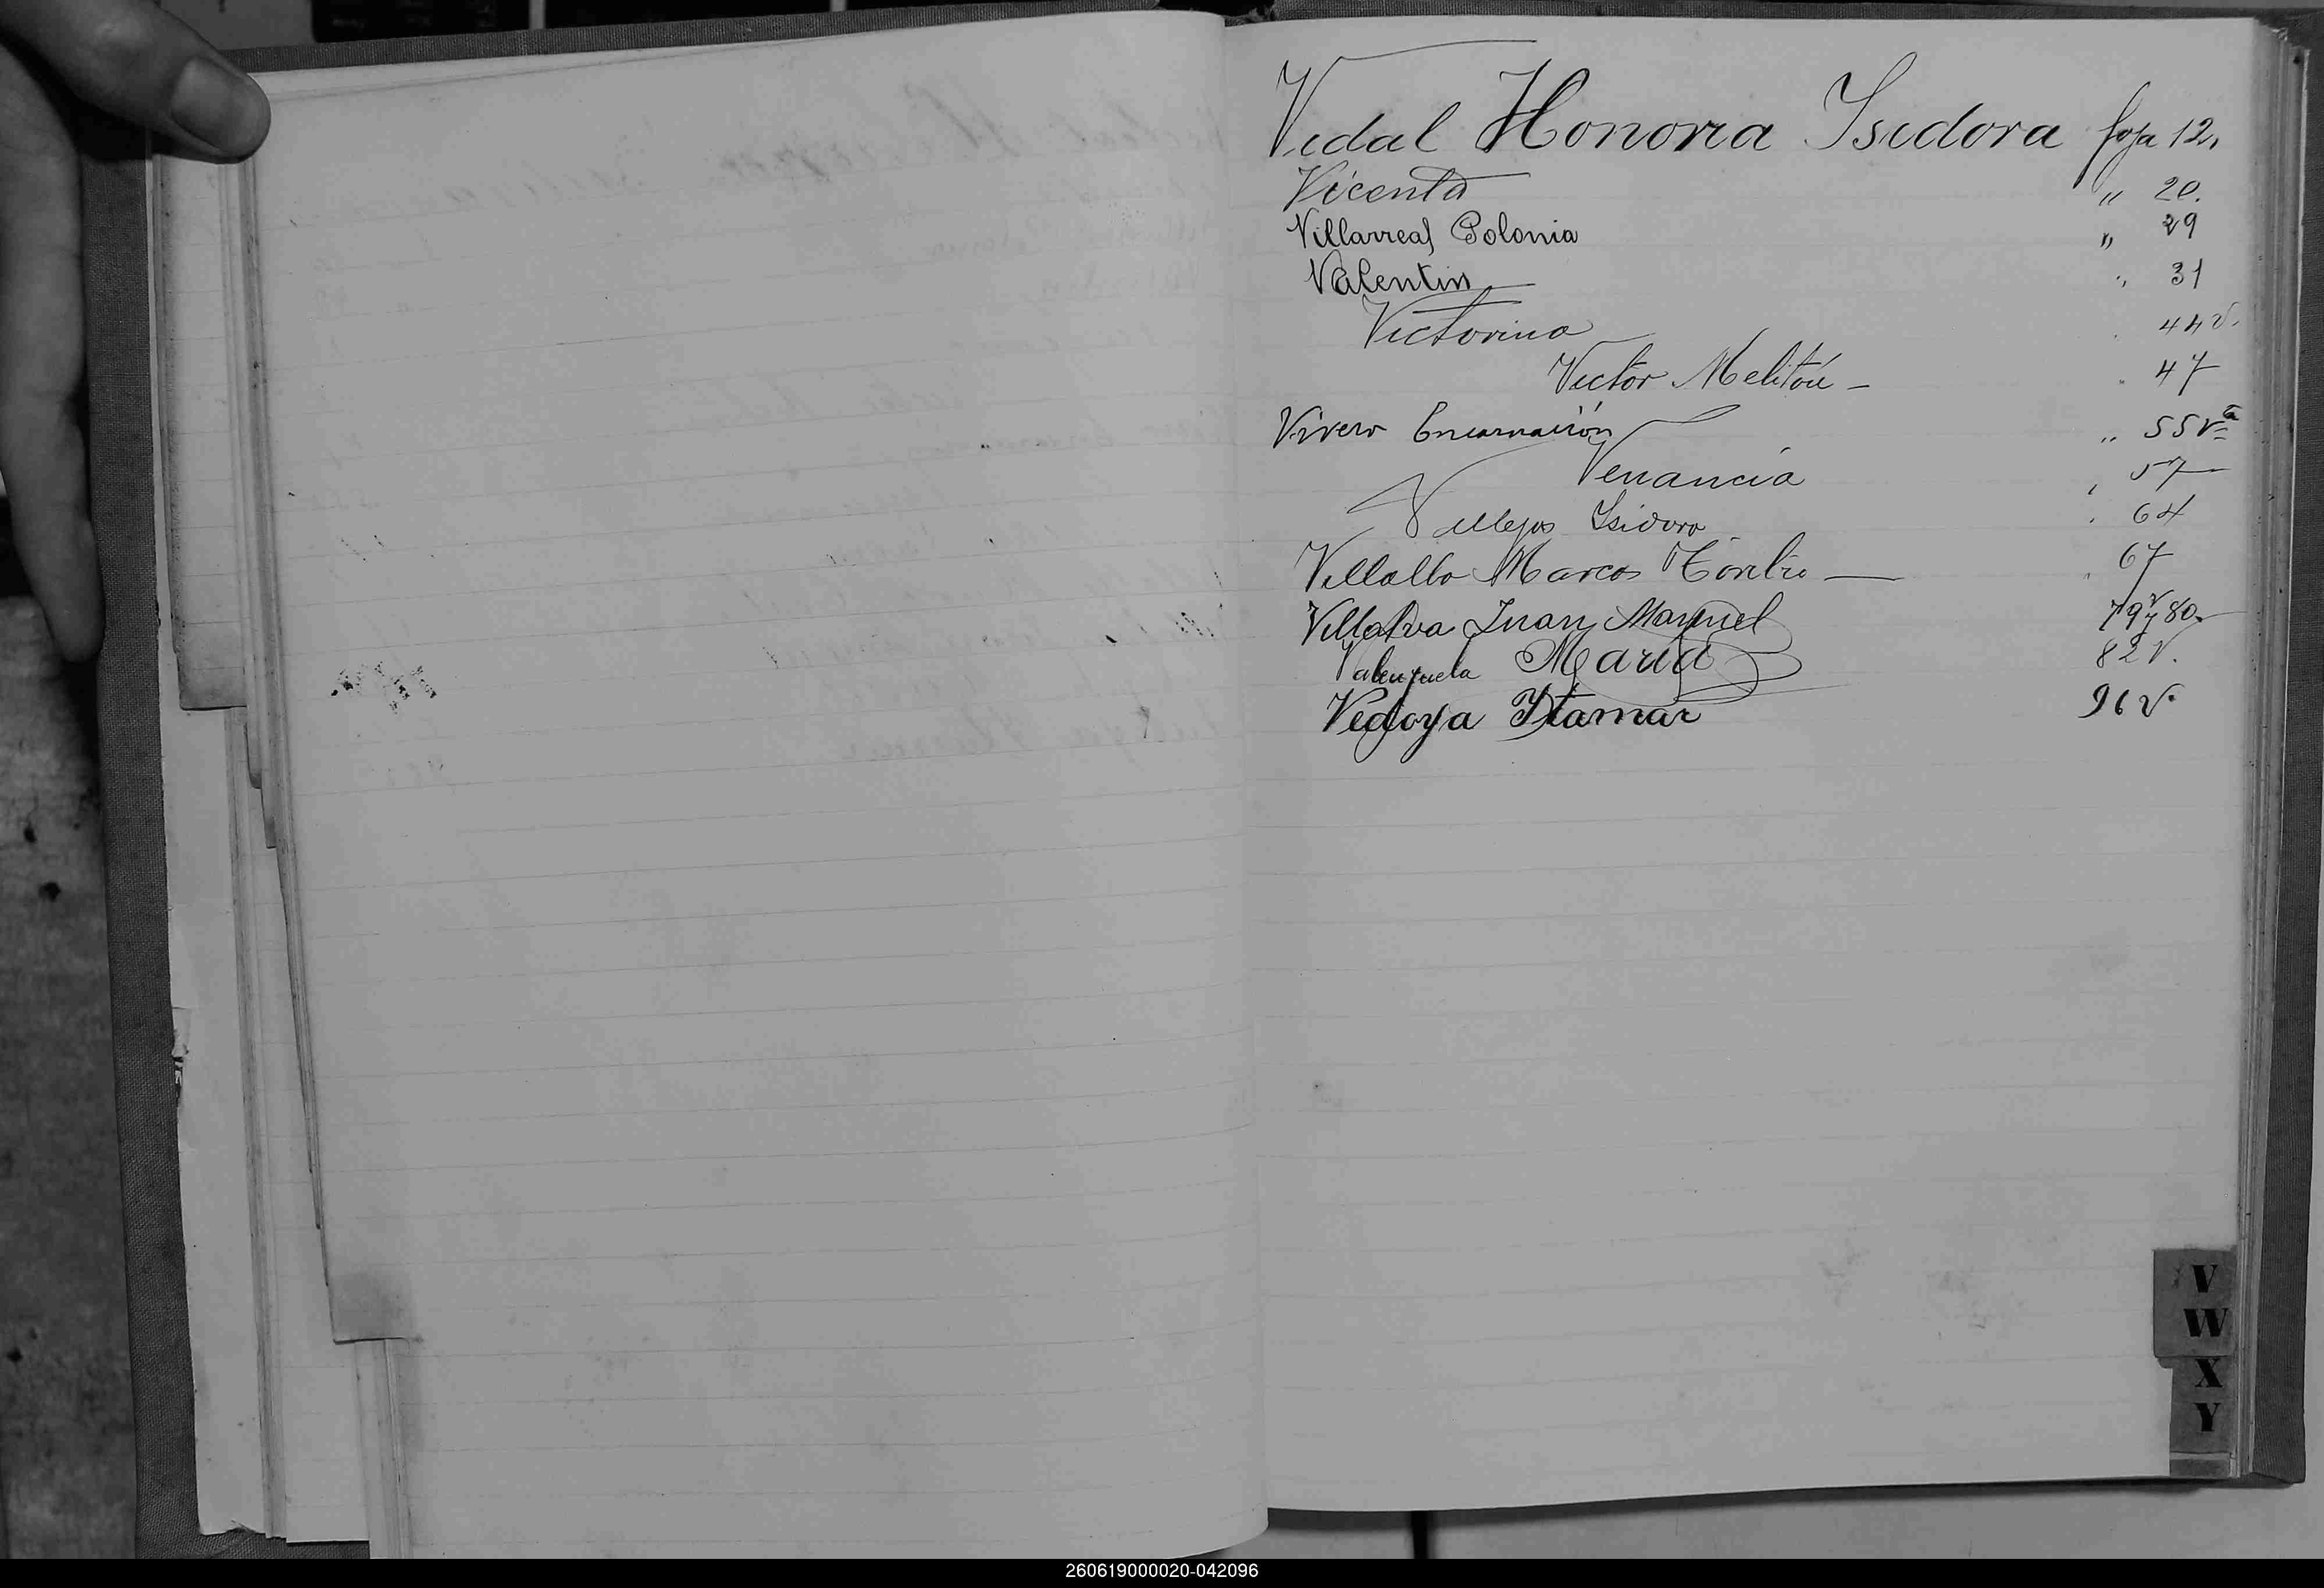 Vidal Honoria Isidora foja 12.
Vicenta " 20.
Villarreal Polonia " 29
Valentin " 31
Victorina 44 v.
Victor Melitón - " 47
Vivero Encarnación " 55 vta
Venancia " 57
Vallejos Isidoro " 64
Villalba Marcos Toribio — " 67
Villalva Juan Manuel 79 v y 80.
Valenzuela María 82 v.
Vedoya Itamar 96 v.
V
W
X
Y
260619000020-042096